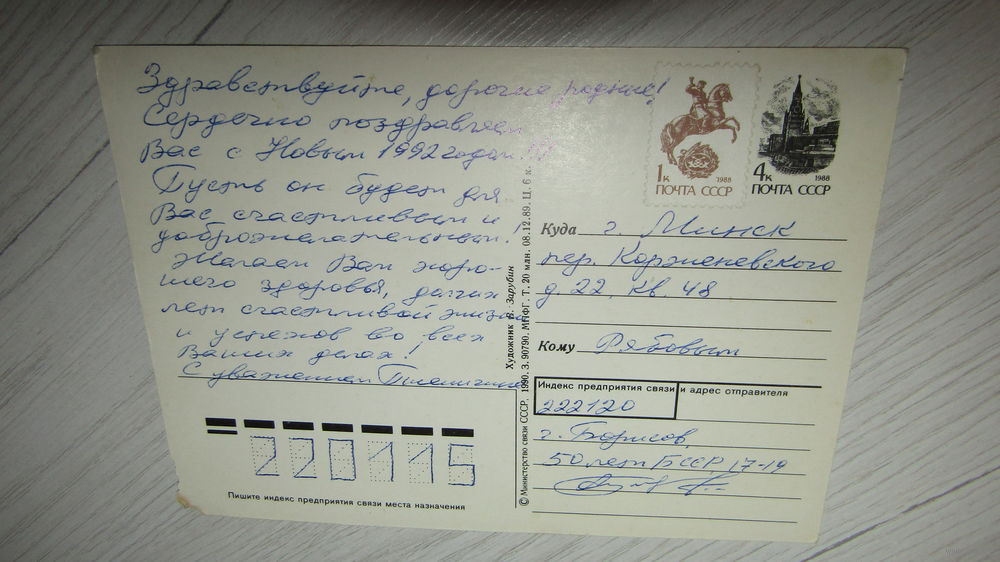 Здравствуйте, дорогие родные!
Сердечно поздравляем
Вас с Новым 1992 годом!!!
Пусть он будет для
Вас счастливым и
доброжелательным!
Желаем Вам хоро-
шего здоровья, долгих
лет счастливой жизни
и успехов во всех
Ваших делах!
С уважением
220115
Пишите индекс предприятия связи места назначения
© Министерство связи СССР. 1990. З. 90790. МПФГ. Т. 20 млн. 08.12.89. Ц. 6 к.
Художник В. Зарубин
1к
1988
ПОЧТА СССР
4к
1988
ПОЧТА СССР
Куда г. Минск
пер. Корженевского
д. 22, кв. 48
Кому Рябовым
Индекс предприятия связи и адрес отправителя
222120
г. Борисов
50 лет БССР, 17-19